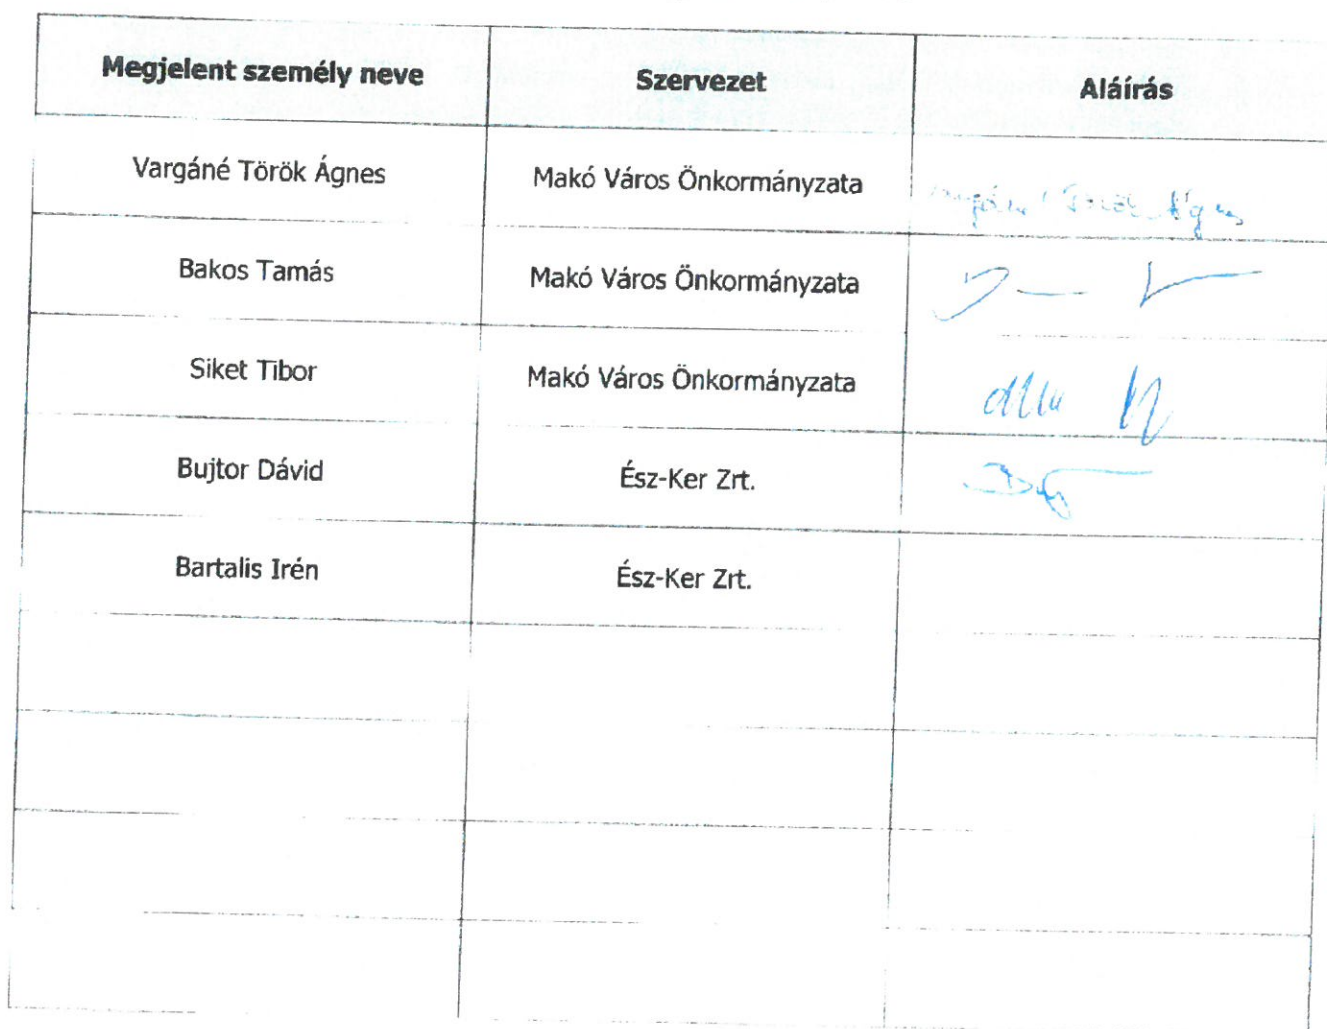 Megjelent személy neve Szervezet Aláírás
Vargáné Török Ágnes Makó Város Önkormányzata Vargáné Török Ágnes
Bakos Tamás Makó Város Önkormányzata
Siket Tibor Makó Város Önkormányzata
Bujtor Dávid Ész-Ker Zrt.
Bartalis Irén Ész-Ker Zrt.